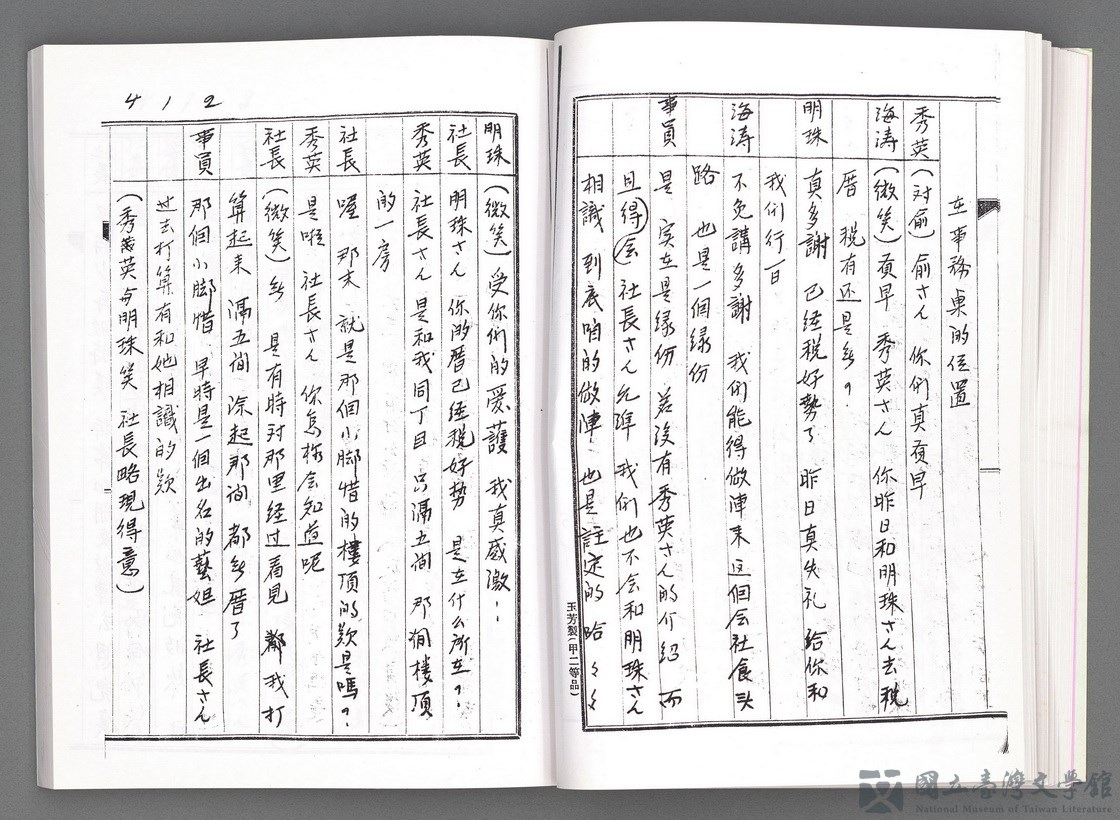 在事務桌的位置
秀英 (对俞) 俞さん 你們真㚊早
海涛 (微笑) 㚊早 秀英さん 你昨日和明珠さん去税
厝 税有还是無?
明珠 真多謝 已経税好勢了 昨日真失礼 給你和
我們行一日
海涛 不免講多謝 我們能得做陣来這個会社食头
路 也是一個緣份
事員 是 実在是緣份 若没有秀英さん的介紹 而
且得会社長さん允准 我們也不会和明珠さん
相識 到底咱的做陣 也是註定的 哈々々
玉芳製(甲二等品)
412
明珠 (微笑) 受你們的愛護 我真感激!
社長 明珠さん 你的厝已経税好勢 是在什么所在?
秀英 社長さん 是和我同丁目 只隔五間 那間樓頂
的一房
社長 喔 那末 就是那個小脚惜的樓頂的欵是嗎?
秀英 是啦 社長さん 你怎樣会知道呢
社長 (微笑) 無 是有時対那里経过看見 鄰我打
算起来 隔五間 除起那間 都無厝了
事員 那個小脚惜 早時是一個出名的藝妲 社長さん
过去打算有和她相識的欵
(秀英与明珠笑 社長略現得意)
國立臺灣文學館
National Museum of Taiwan Literature